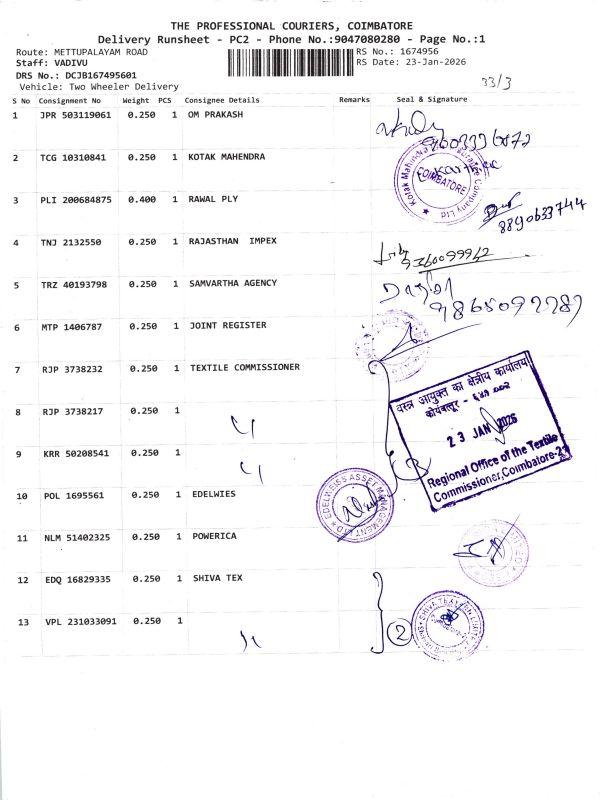 THE PROFESSIONAL COURIERS, COIMBATORE
Delivery Runsheet - PC2 - Phone No.:9047080280 - Page No.:1
Route: METTUPALAYAM ROAD
RS No.: 1674956
Staff: VADIVU
RS Date: 23-Jan-2026
DRS No.: DCJB167495601
Vehicle: Two Wheeler Delivery
33/3
S No Consignment No Weight PCS Consignee Details Remarks Seal & Signature
1 JPR 503119061 0.250 1 OM PRAKASH
2 TCG 10310841 0.250 1 KOTAK MAHENDRA
COIMBATORE
3 PLI 200684875 0.400 1 RAWAL PLY
8890633744
4 TNJ 2132550 0.250 1 RAJASTHAN IMPEX
5 TRZ 40193798 0.250 1 SAMVARTHA AGENCY
6 MTP 1406787 0.250 1 JOINT REGISTER
7 RJP 3738232 0.250 1 TEXTILE COMMISSIONER
वस्त्र आयुक्त का क्षेत्रीय कार्यालय
कोयंबत्तूर - ६४१ ००२
23 JAN 2026
Regional Office of the Textile
Commissioner, Coimbatore-2
8 RJP 3738217 0.250 1
9 KRR 50208541 0.250 1
10 POL 1695561 0.250 1 EDELWIES
EDELWEISS ASSET MANAGEMENT LTD
11 NLM 51402325 0.250 1 POWERICA
12 EDQ 16829335 0.250 1 SHIVA TEX
13 VPL 231033091 0.250 1
2